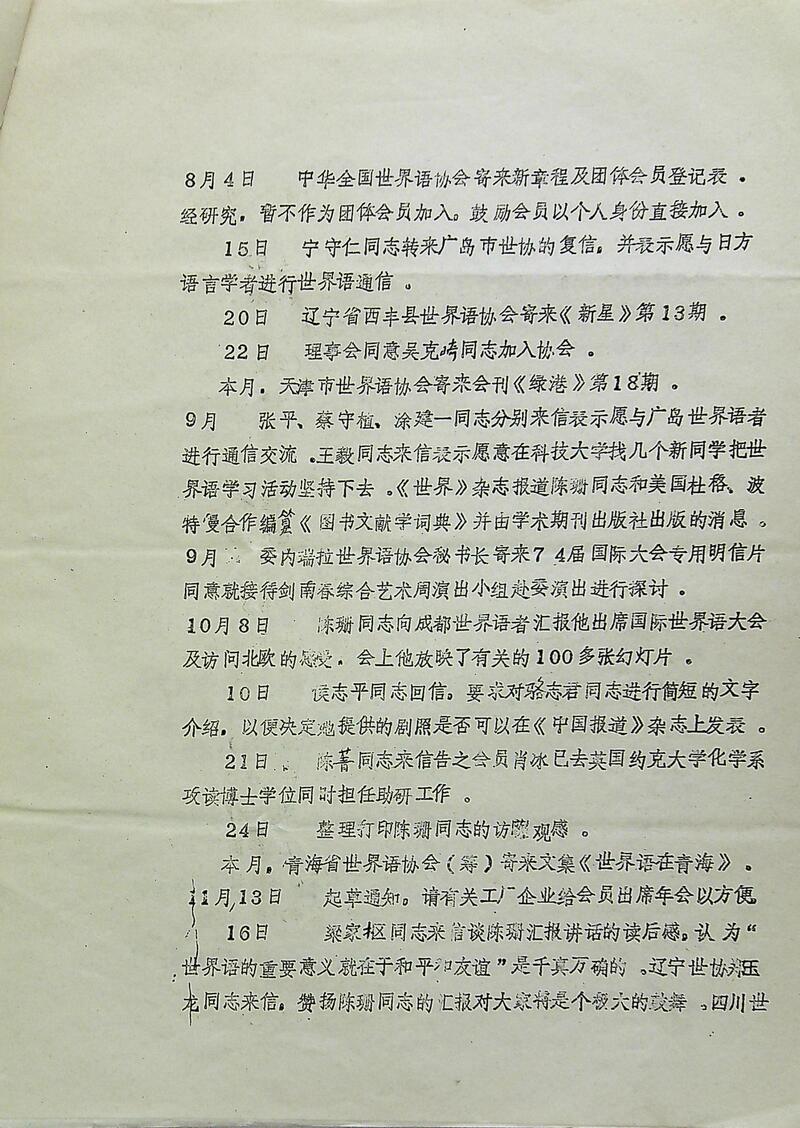 8月4日 中华全国世界语协会寄来新章程及团体会员登记表。
经研究，暂不作为团体会员加入。鼓励会员以个人身份直接加入。
15日 宁守仁同志转来广岛市世协的复信，并表示愿与日方
语言学者进行世界语通信。
20日 辽宁省西丰县世界语协会寄来《新星》第13期。
22日 理事会同意吴克崎同志加入协会。
本月，天津市世界语协会寄来会刊《绿港》第18期。
9月 张平、蔡守植、涂建一同志分别来信表示愿与广岛世界语者
进行通信交流。王毅同志来信表示愿意在科技大学找几个新同学把世
界语学习活动坚持下去。《世界》杂志报道陈珊同志和美国杜格、波
特曼合作编纂《图书文献学词典》并由学术期刊出版社出版的消息。
9月 委内瑞拉世界语协会秘书长寄来74届国际大会专用明信片
同意就接待剑南春综合艺术周演出小组赴委演出进行探讨。
10月8日 陈珊同志向成都世界语者汇报他出席国际世界语大会
及访问北欧的感受，会上他放映了有关的100多张幻灯片。
10日 侯志平同志回信，要求对骆志君同志进行简短的文字
介绍，以便决定她提供的剧照是否可以在《中国报道》杂志上发表。
21日 陈菁同志来信告之会员肖冰已去英国约克大学化学系
攻读博士学位同时担任助研工作。
24日 整理打印陈珊同志的访欧观感。
本月，青海省世界语协会（筹）寄来文集《世界语在青海》。
11月13日 起草通知。请有关工厂企业给会员出席年会以方便。
16日 梁家枢同志来信谈陈珊汇报讲话的读后感。认为“
世界语的重要意义就在于和平和友谊”是千真万确的。辽宁世协 玉
龙同志来信，赞扬陈珊同志的汇报对大家将是个极大的鼓舞。四川世